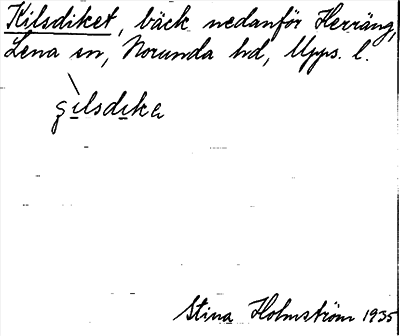 Kilsdiket, bäck nedanför Herräng,
Lena sn, Norunda hd, Upps. l.
gilsdika
Stina Holmström 1935